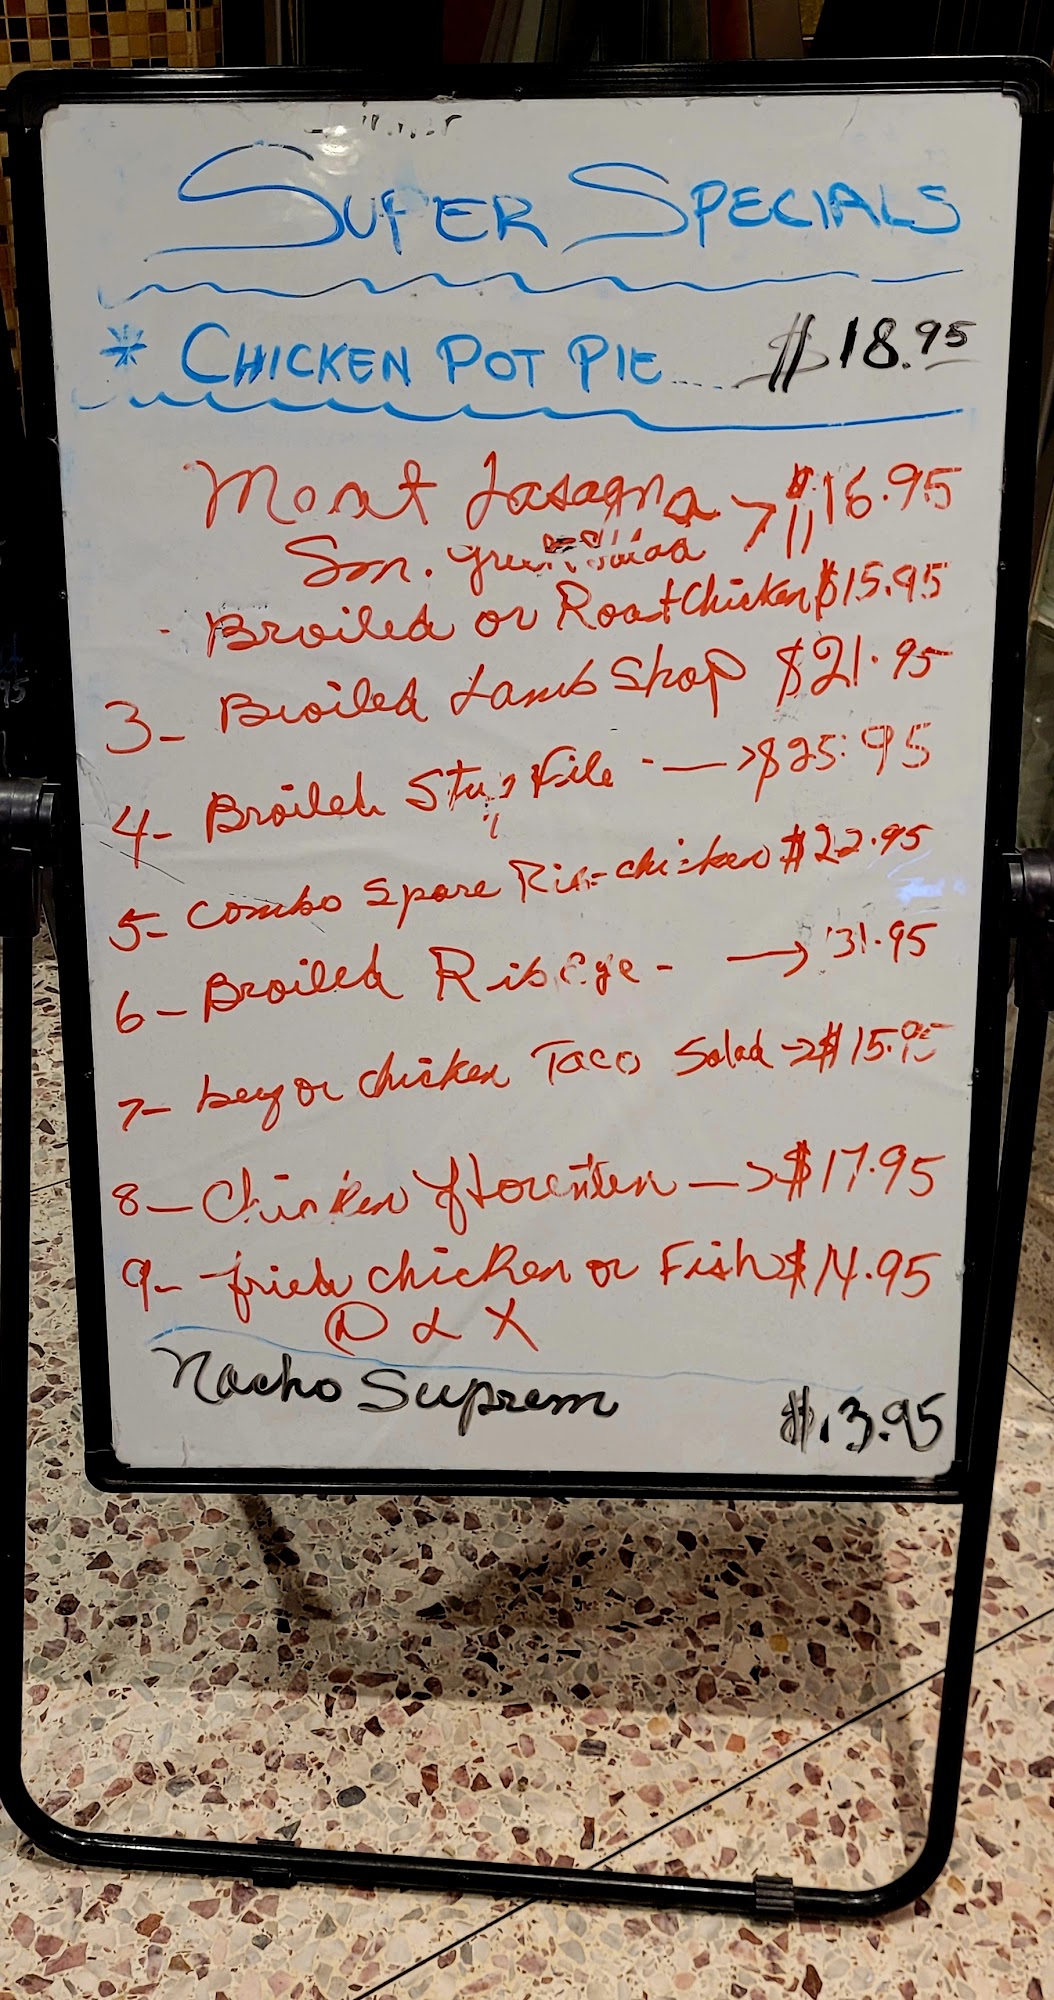 SUPER SPECIALS
* CHICKEN POT PIE.... $18.95
Meat Lasagna → $16.95
Sm. greek salad
- Broiled or Roast Chicken $15.95
3- Broiled Lamb Shop $21.95
4- Broiled Stuf File -→ $25.95
5- combo Spare Rib-chicken $22.95
6- Broiled Rib Eye - → 31.95
7- beef or chicken Taco Salad → $15.95
8- Chicken florenten → $17.95
9- fried chicken or Fish $14.95
Nacho Suprem $13.95